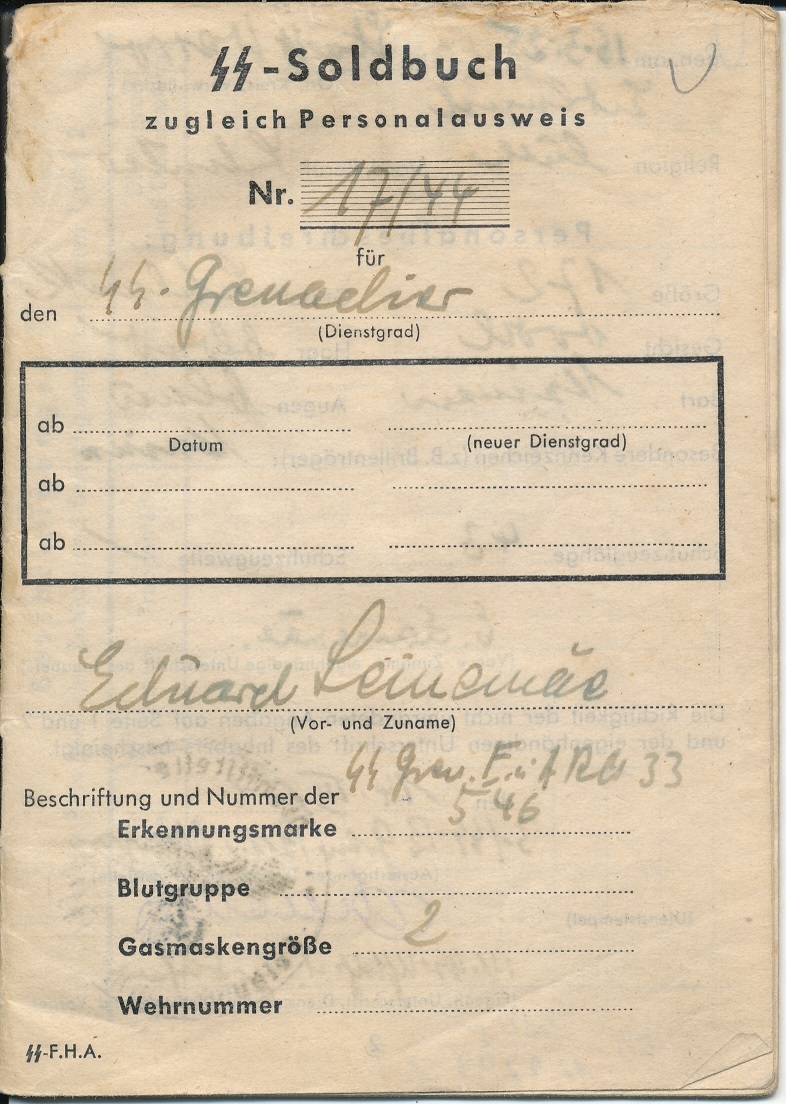 ᛋᛋ-Soldbuch
zugleich Personalausweis
Nr. 17/44
für
den ᛋᛋ-Grenadier
(Dienstgrad)
ab
Datum (neuer Dienstgrad)
ab
ab
Eduard Leinemäe
(Vor- und Zuname)
ᛋᛋ Gren. E. u. A. 33
Beschriftung und Nummer der 546
Erkennungsmarke
Blutgruppe
Gasmaskengröße 2
Wehrnummer
ᛋᛋ-F.H.A.